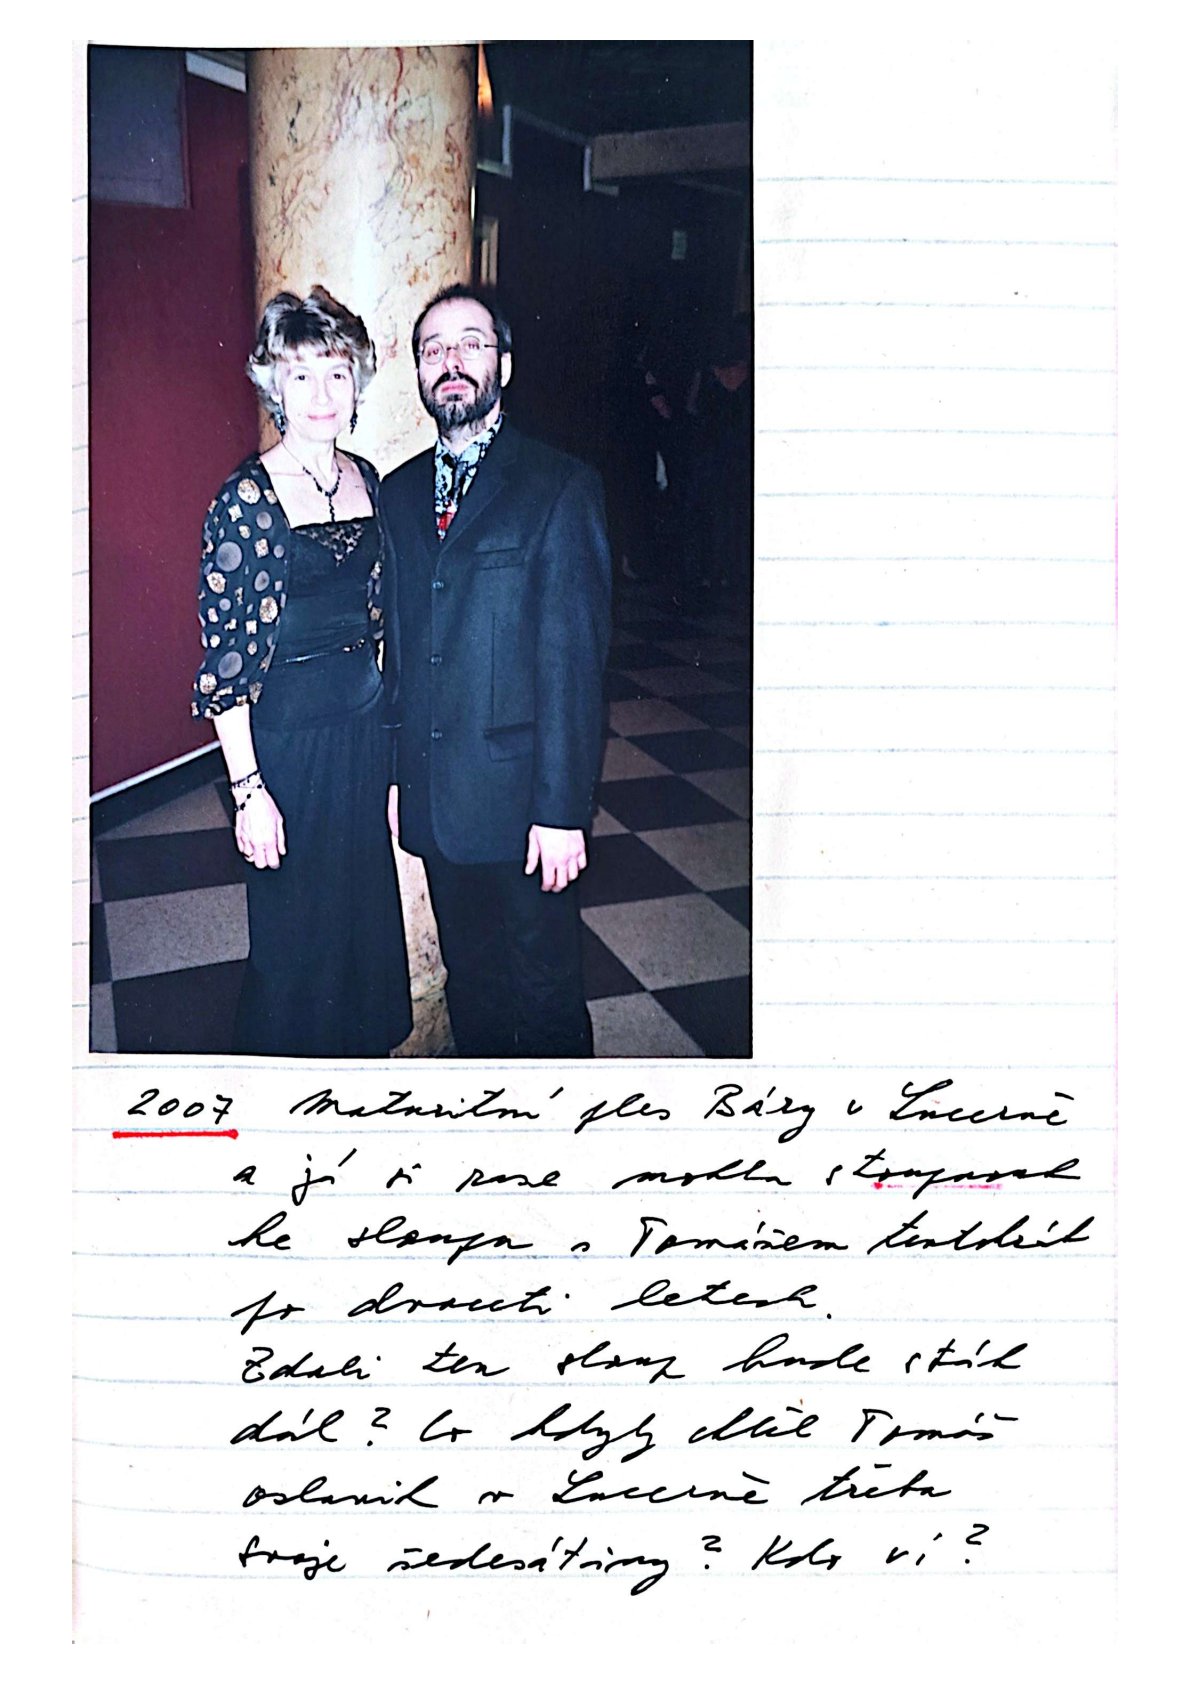 2007 Maturitní ples Báry v Lucerně
a já si zase mohla stoupnout
ke sloupu s Tomášem tentokrát
po dvaceti letech.
Zdali ten sloup bude stát
dál? Co kdyby chtěl Tomáš
oslavit v Lucerně třeba
svoje šedesátiny? Kdo ví?